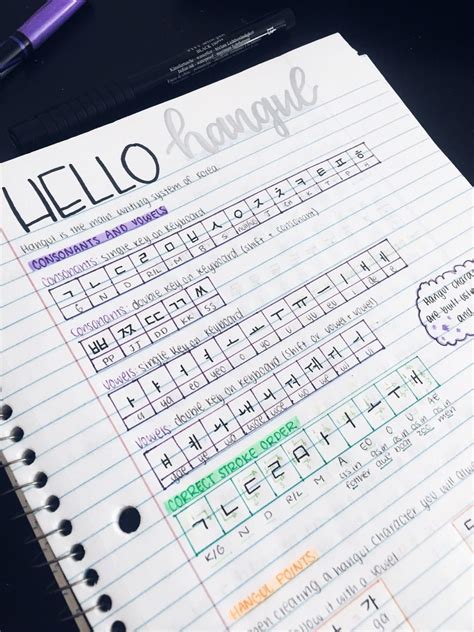 BLACK
HELLO hangul
Hangul is the main writing system of Korea
CONSONANTS AND VOWELS
consonants: single key on keyboard
ㄱ ㄴ ㄷ ㄹ ㅁ ㅂ ㅅ ㅇ ㅈ ㅊ ㅋ ㅌ ㅍ ㅎ
G N D R/L M B S J CH K T P H
consonants: double key on keyboard (shift + consonant)
ㅃ ㅉ ㄸ ㄲ ㅆ
PP JJ DD KK SS
vowels: single key on keyboard
ㅏ ㅑ ㅓ ㅕ ㅗ ㅛ ㅜ ㅠ ㅡ ㅣ ㅐ ㅔ
a ya eo yeo o yo u yu eu i ae e
vowels: double key on keyboard (shift or vowel + vowel)
yae ye wa wae oe wo we wi ui
CORRECT STROKE ORDER:
ㄱ ㄴ ㄷ ㄹ ㅁ ㅏ ㅓ ㅗ ㅜ ㅐ
K/G N D R/L M A EO O U AE
as in father
Hangul
are built
and
HANGUL POINTS:
when creating a hangul character you will alwa
follow it with a vowel
가